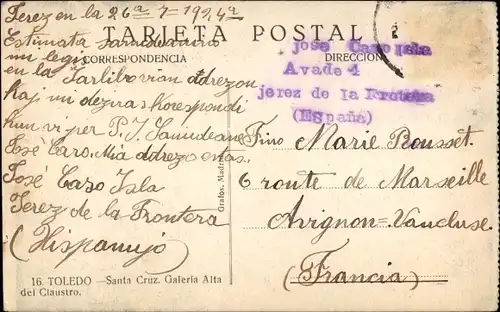 Jerez en la 26ª 7 1924ª
TARJETA POSTAL
CORRESPONDENCIA
DIRECCION
Estimata samideanino
mi legis
en la Jarlibro vian adrezon
kaj mi deziras korespondi
kun vi per P. I. Samideane
José Caro. Mia adrezo estas
José Caro Isla
Jerez de la Frontera
(Hispanujo)
16. TOLEDO — Santa Cruz. Galería Alta
del Claustro.
Grafos. Madrid
jose Caro isla
Avade 4
jerez de la Frotera
(España)
Fino Marie Rousset.
6 route de Marseille
Avignon-Vaucluse
(Francia)